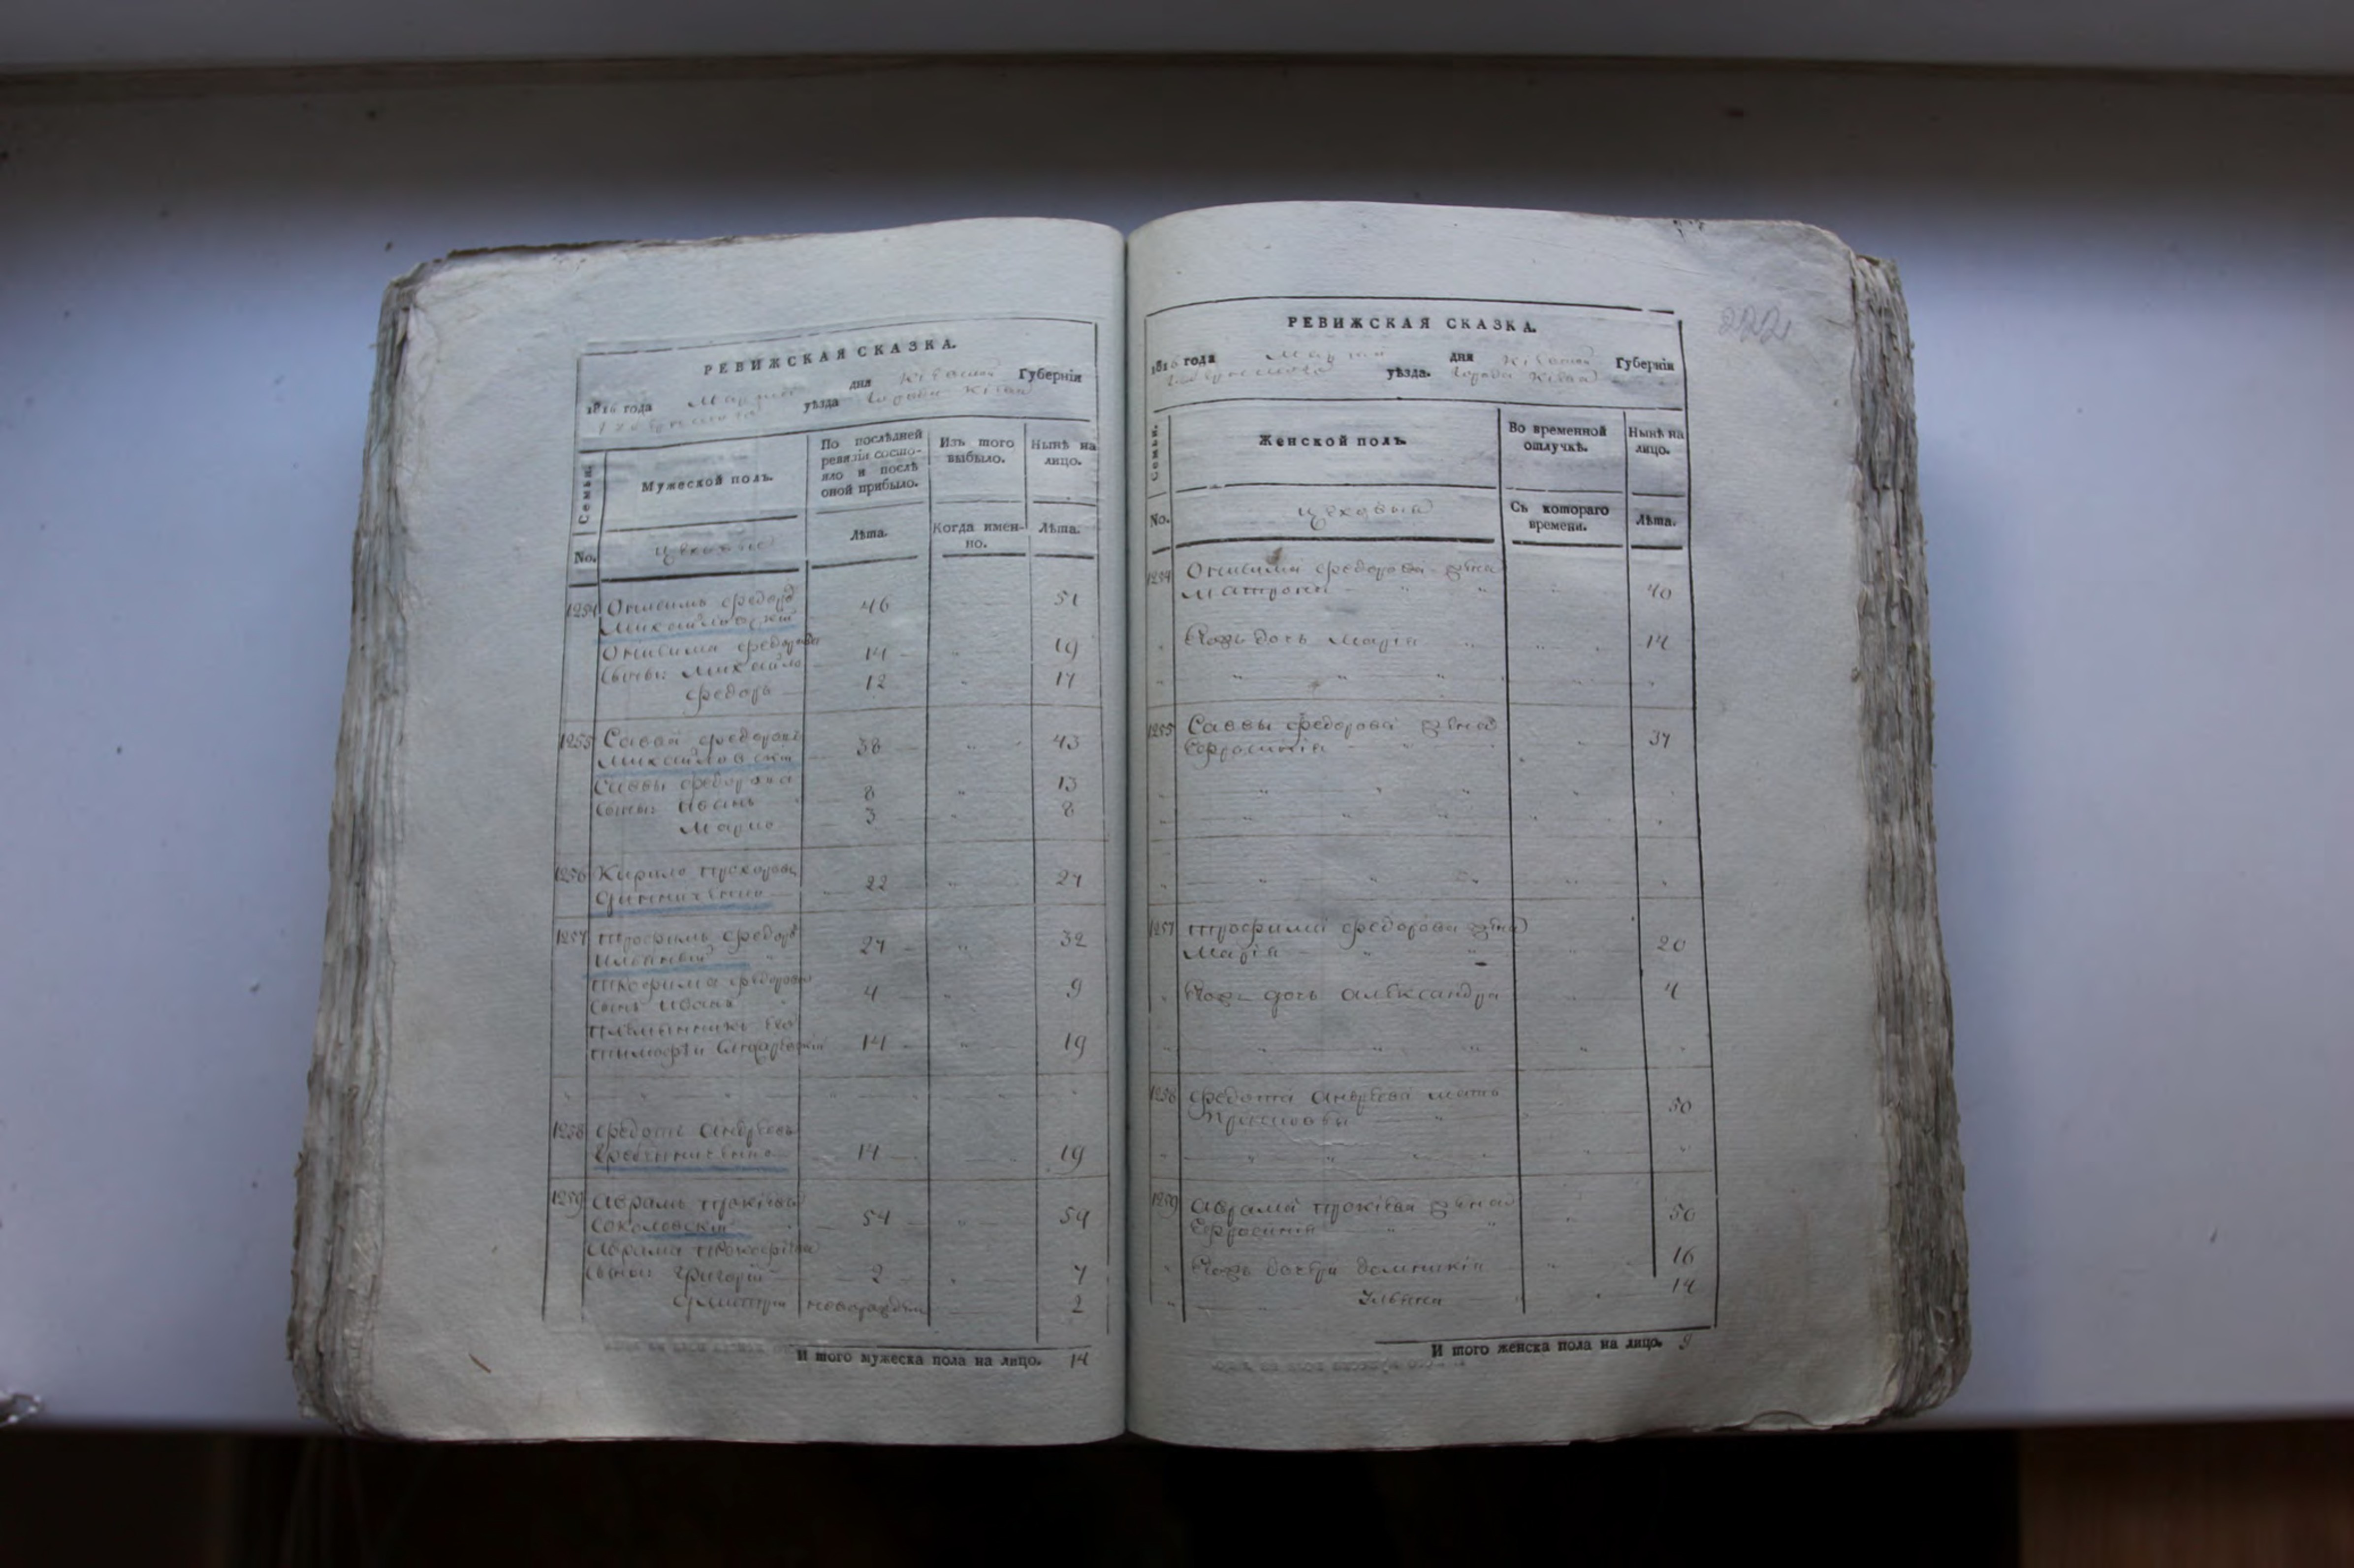 РЕВИЖСКАЯ СКАЗКА.
1816 года Марта дня Кіевской Губерніи
уѣзда города Кіева
Семьи.
Мужеской полъ.
По послѣдней ревизіи состояло и послѣ оной прибыло.
Изъ того выбыло.
Нынѣ на лицо.
No.
цеховые
Лѣта.
Когда имен-но.
Лѣта.
1254 Онисимъ Федоровъ
Михайловскій 46 51
Онисима Федорова
сыновья: Михайло 14 19
Федоръ 12 17
1255 Савва Федоровъ 38 43
Михайловскій
Саввы Федорова
сыновья: Иванъ 8 13
Марко 3 8
1256 Кирило Прохоровъ 22 27
1257 Трофимъ Федоровъ 27 32
Трофима Федорова 4 9
сынъ Иванъ
племянникъ его
Тимофѣй 14 19
1258 Федотъ Андреевъ
Гребинниченко 14 19
1259 Аврамъ Прокіевъ
Соколовскій 54 59
Аврама Прокофіева
сыновья: Григорій 2 7
Дмитрій новорожден 2
И того мужеска пола на лицо. 14
РЕВИЖСКАЯ СКАЗКА.
1816 года Марта дня Кіевской Губерніи
уѣзда. города Кіева
Семьи.
Женской полъ.
Во временной отлучкѣ.
Нынѣ на лицо.
No.
цеховые
Съ котораго времени.
Лѣта.
1254 Онисима Федорова жена
Матрона 40
Ихъ дочь Марія 14
1255 Саввы Федорова жена 37
Евфросинія
1257 Трофима Федорова жена
Марія 20
Ихъ дочь Александра 4
1258 Федота Андреева мать 50
1259 Аврама Прокіева жена 50
Евфросинія
Ихъ дочери Домникія 16
Ульяна 14
И того женска пола на лицо. 9